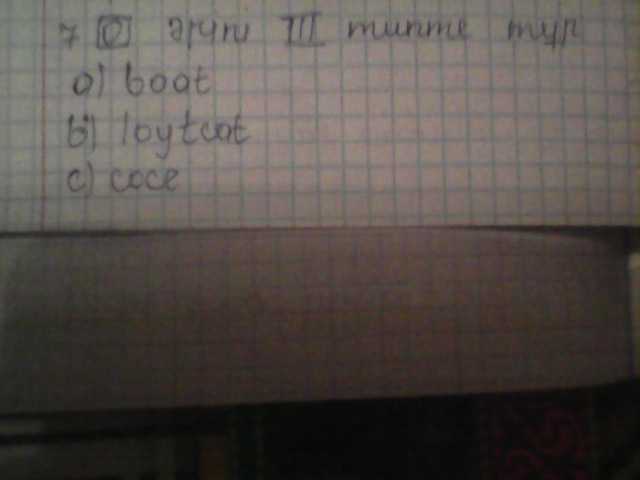 7 [O] әрпі III типте тұр
a) boat
b) loytcat
c) coce